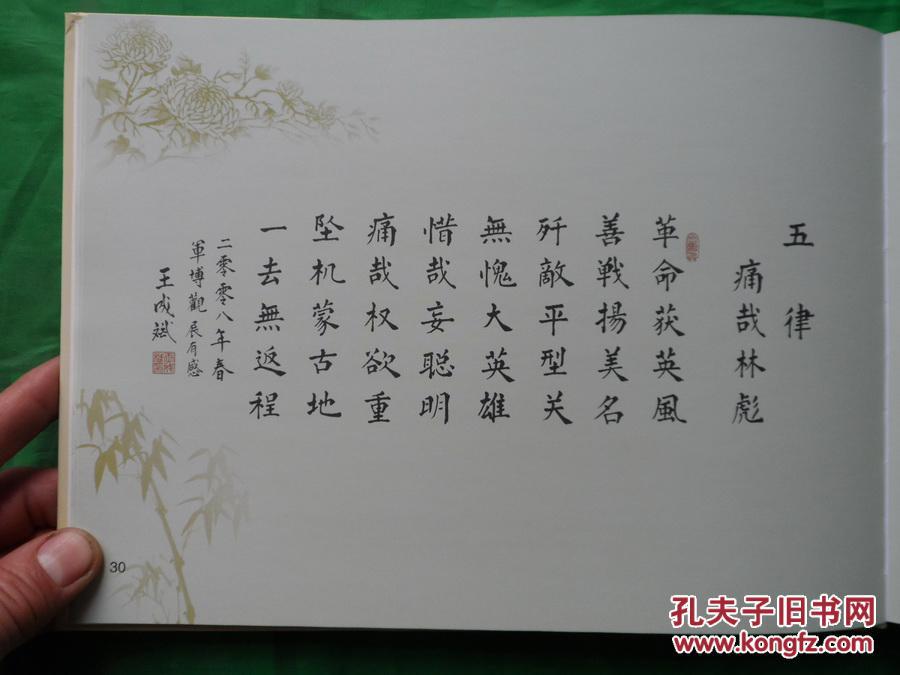 五律
痛哉林彪
革命获英風
善戰揚美名
歼敵平型关
無愧大英雄
惜哉妄聪明
痛哉权欲重
坠机蒙古地
一去無返程
二零零八年春
軍博觀展有感
王成斌
30
孔夫子旧书网
www.kongfz.com